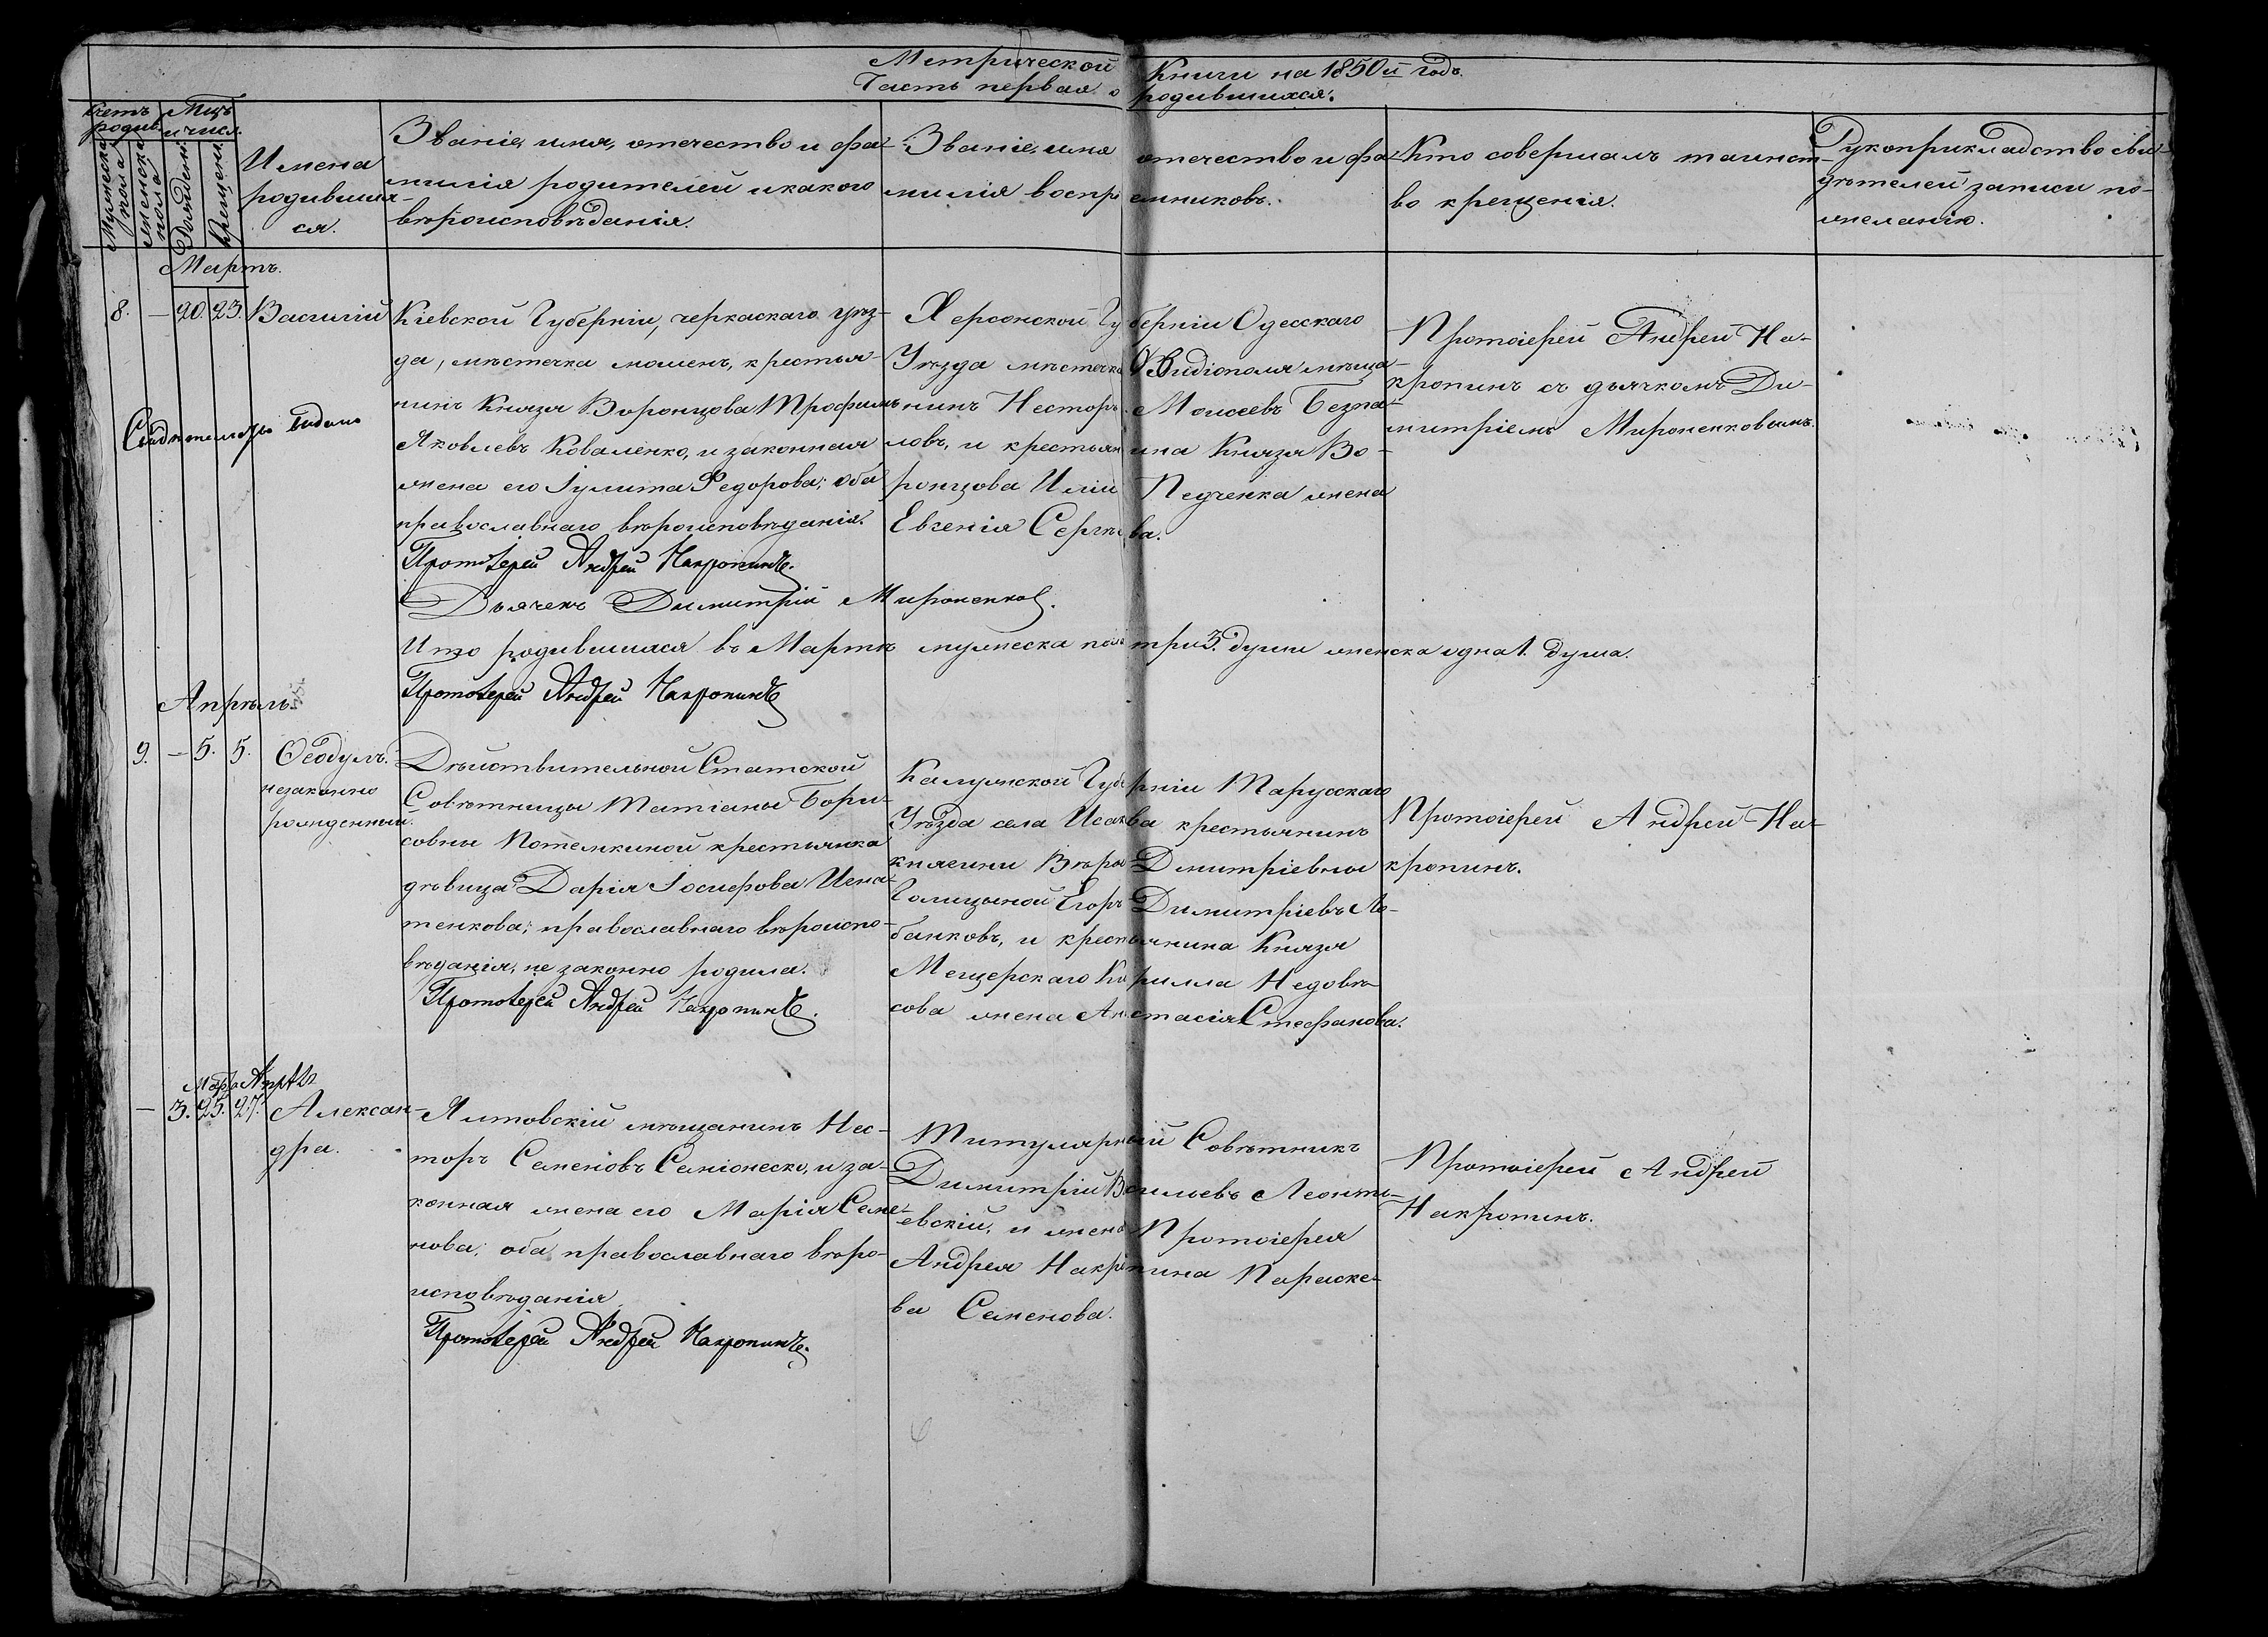 Метрической Книги на 1850й годъ.
Часть первая о родившихся.
Счетъ родив.
Мужеска пола
Женска пола
Мцъ и числ.
Рожденія
Крещенія
Имена
родивших-
ся.
Званіе, имя, отечество и фа-
милія родителей и какого
вѣроисповѣданія.
Званіе, имя отечество и фа-
милія воспріемниковъ.
Кто совершалъ таинст-
во крещенія.
Рукоприкладство сви-
дѣтелей записи по
желанію.
Мартъ.
8. — 20. 23. Василій
Свидѣтельство выдано
Кіевской Губерніи, черкаскаго уѣз-
да, мѣстечка мошенъ, крестья-
нинъ Князя Воронцова Трофимъ
Яковлевъ Коваленко, и законная
жена его Іулита Федорова; оба
православнаго вѣроисповѣданія.
Протоіерей Андрей Накропинъ.
Дьячекъ Димитрій Мироненков.
Херсонской Губерніи Одесскаго
Уѣзда мѣстечка Овидіополя мѣща-
нинъ Несторъ Моисеевъ Безпа-
ловъ, и крестьянина Князя Во-
ронцова Иліи Педченка жена
Евгенія Сергѣева.
Протоіерей Андрей На-
кропинъ съ дьячкомъ Ди-
митріемъ Мироненковымъ.
Итго родившихся въ Мартѣ мужеска пола три 3. души женска одна 1. душа.
Протоіерей Андрей Накропинъ
Апрѣль.
9. — 5. 5. Ѳеодулъ.
незаконно
рожденный.
Дѣйствительной Статской
Совѣтницы Татіаны Бори-
совны Потемкиной крестьянка
дѣвица Дарія Іосифова Игна-
тенкова; православнаго вѣроиспо-
вѣданія, не законно родила.
Протоіерей Андрей Накропинъ.
Калужской Губерніи Тарусскаго
Уѣзда села Исакова крестьянинъ
княгини Вѣры Димитріевны
Голицыной Егоръ Димитріевъ Ло-
банковъ, и крестьянина Князя
Мещерскаго Кирилла Недовѣ-
сова жена Анастасія Стефанова.
Протоіерей Андрей На-
кропинъ.
Март. Апрѣль
— 3. 25. 27. Алексан-
дра.
Ялтовскій мѣщанинъ Нес-
торъ Семеновъ Синіонеско, и за-
конная жена его Марія Семе-
нова; оба православнаго вѣро-
исповѣданія
Протоіерей Андрей Накропинъ.
Титулярный Совѣтникъ
Димитрій Васильевъ Леонть-
евскій, и жена Протоіерея
Андрея Накропина Параске-
ва Семенова.
Протоіерей Андрей
Накропинъ.